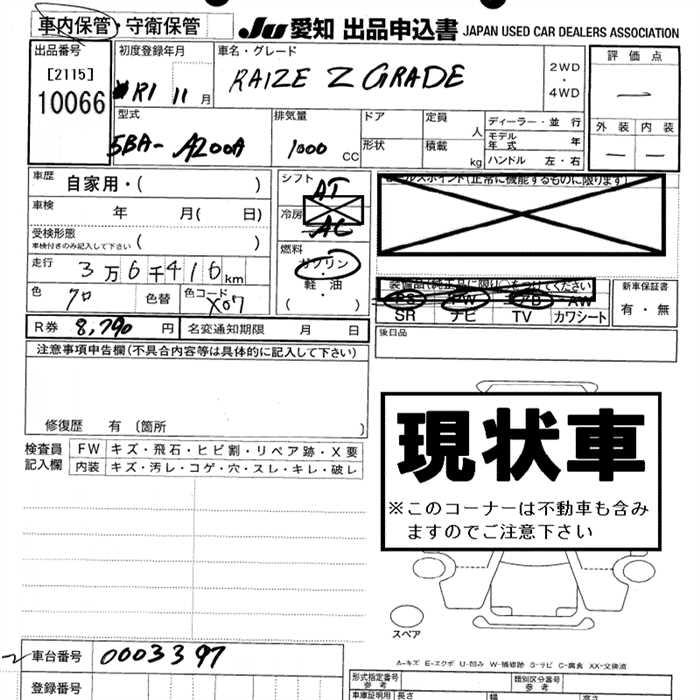 車内保管・守衛保管 JU 愛知 出品申込書 JAPAN USED CAR DEALERS ASSOCIATION
出品番号 初度登録年月 車名・グレード 2WD・4WD 評価点
[2115]
10066 R1 11月 RAIZE Z GRADE —
外装 内装
— —
型式 排気量 ドア 定員 人 ディーラー・並行
5BA- A200A 1000 CC 形状 積載 kg モデル年式 年
ハンドル 左・右
車歴 自家用・( ) シフト AT
車検 年 月( 日) 冷房 AC
受検形態 ( )
車検付きのみ記入して下さい
燃料 ガソリン・軽油・( )
走行 3万6千416km
色 クロ 色替 色コード X07
セールスポイント(正常に機能するものに限ります)
装備品(純正品に限り○をつけてください) 新車保証書
PS PW AB AW 有・無
SR ナビ TV カワシート
R券 8,790円 名変通知期限 月 日 後日品
注意事項申告欄(不具合内容等は具体的に記入して下さい)
修復歴 有 〔箇所 〕
検査員記入欄 FW キズ・飛石・ヒビ割・リペア跡・X要
内装 キズ・汚レ・コゲ・穴・スレ・キレ・破レ
現状車
※このコーナーは不動車も含み
ますのでご注意下さい
スペア
A-キズ E-エクボ U-凹み W-補修跡 S-サビ C-腐食 XX-交換済
車台番号 0003397
登録番号
形式指定番号 参考 類別区分番号 参考
車庫証明用 長さ 幅 高さ